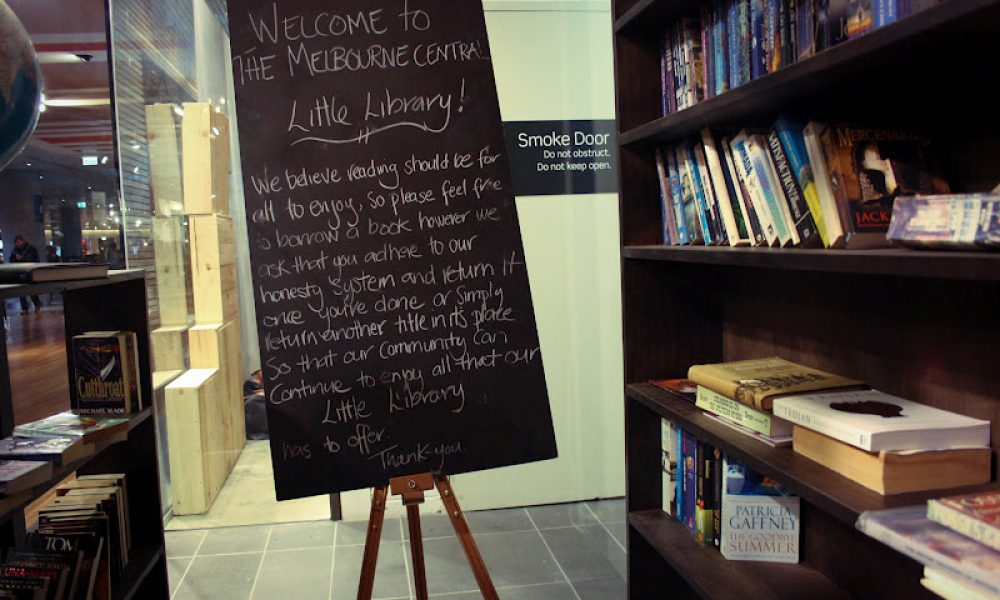 Welcome to
The Melbourne Central
Little Library!
We believe reading should be for
all to enjoy, so please feel free
to borrow a book however we
ask that you adhere to our
honesty system and return it
once you've done or simply
return another title in its place
So that our community can
Continue to enjoy all that our
Little Library
has to offer.
Thank-you.
Smoke Door
Do not obstruct.
Do not keep open.
MERCENARIES
JACK
SATISFACTION
TROJAN
PATRICIA
GAFFNEY
THE GOODBYE
SUMMER
Cutthroat
MICHAEL SLADE
TOM